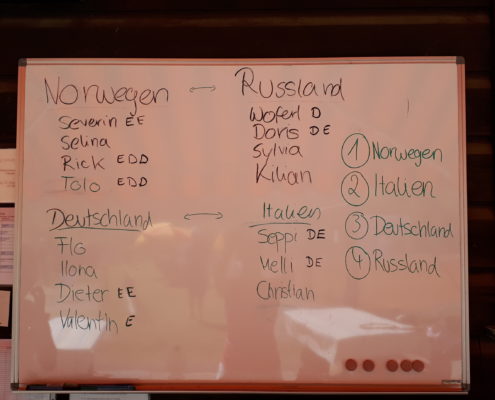 Norwegen ↔ Russland
Severin EE
Selina
Rick EDD
Tolo EDD
Woferl D
Doris DE
Sylvia
Kilian
Deutschland ↔ Italien
Flo
Ilona
Dieter EE
Valentin E
Seppi DE
Melli DE
Christian
1 Norwegen
2 Italien
3 Deutschland
4 Russland